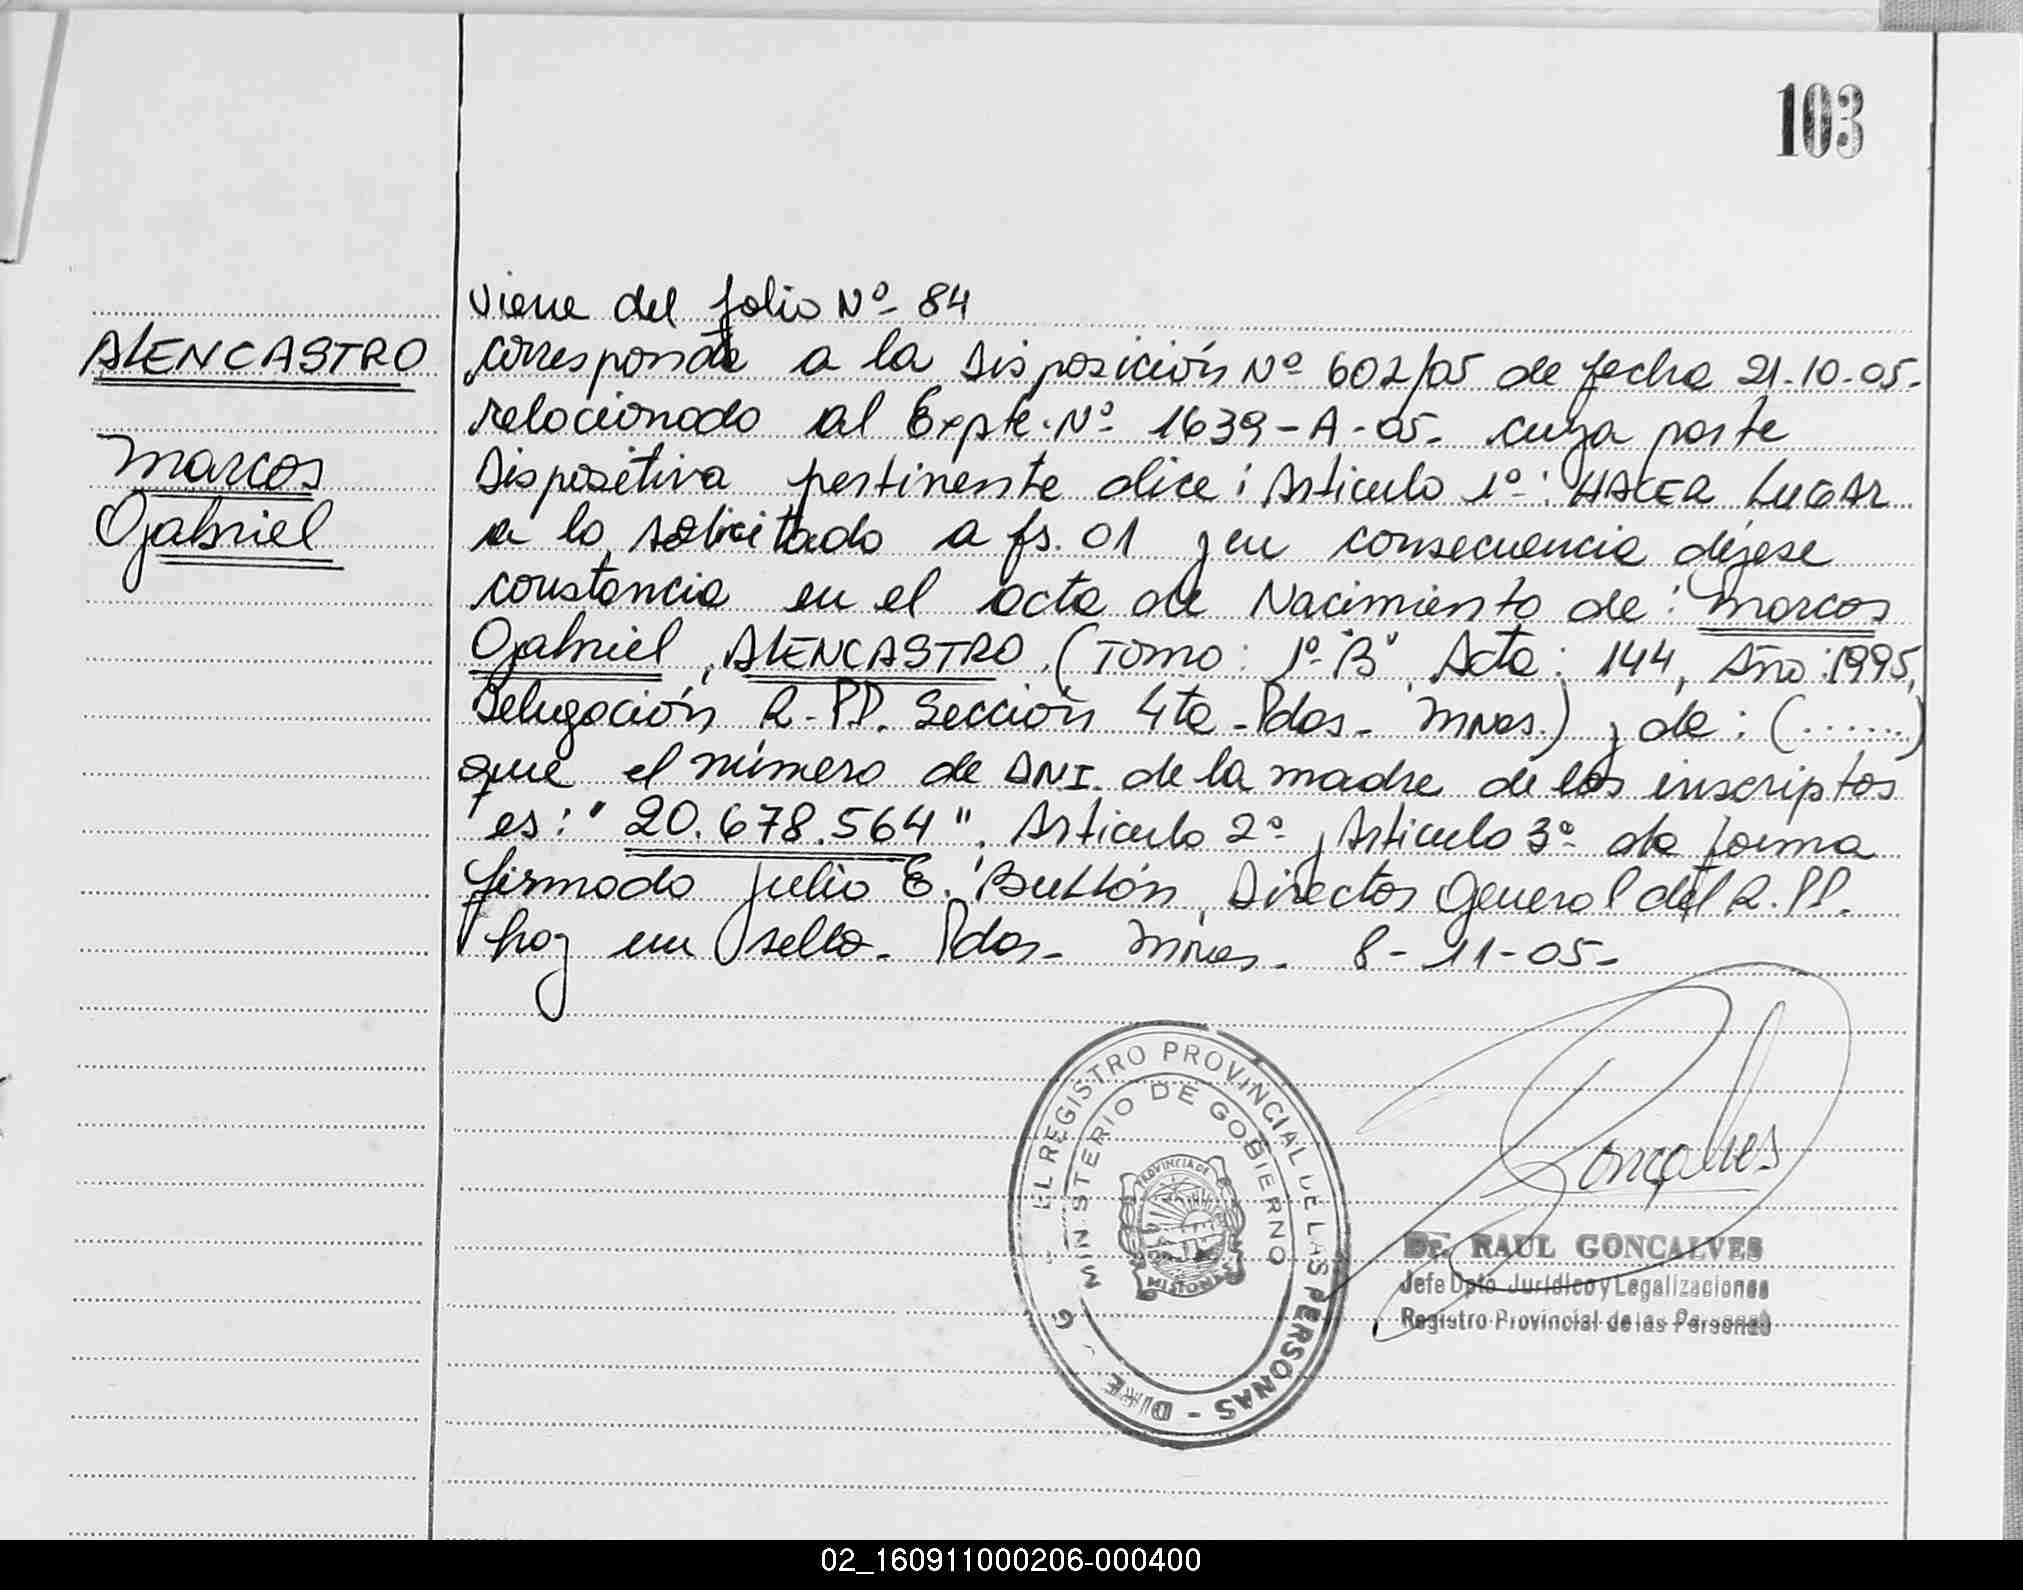 103
Viene del folio Nº 84
ALENCASTRO
corresponde a la Disposición Nº 602/05 de fecha 21-10-05.
relacionado al Expte. Nº 1639-A-05- cuya parte
Marcos
Dispositiva pertinente dice: Articulo 1º: HACER LUGAR
Gabriel
a lo solicitado a fs. 01 y en consecuencia déjese
constancia en el acta de Nacimiento de: Marcos
Gabriel, ALENCASTRO, (Tomo: 1º "B", Acta: 144, Año: 1995,
Delegación R-PP. Sección 4ta - Pdas - Mnes.) y de: (......)
que el número de DNI. de la madre de los inscriptos
es: "20.678.564". Articulo 2º y Articulo 3º de forma
firmado Julio E. Bullón, Director General del R.PP.
hay un sello - Pdas - Mnes - 8-11-05-
EL REGISTRO PROVINCIAL DE LAS PERSONAS - DIRE
MINISTERIO DE GOBIERNO
PROVINCIA DE
MISIONES
Gonçalves
Dr. RAUL GONCALVES
Jefe Dpto Jurídico y Legalizaciones
Registro Provincial de las Personas
02_160911000206-000400